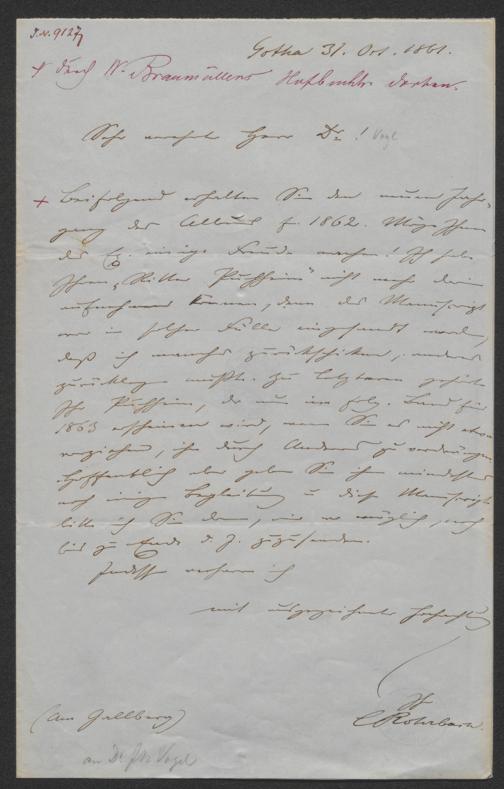 I.N. 9127
Gotha 31. Oct. 1861.
+ durch W. Braumüllers Hofbuchh. dorten.
Sehr verehrter Herr Dr.! Vogl
+ Beifolgend erhalten Sie den neuen Jahr-
gang des Albums f. 1862. Möge Ihnen
das Ex. einige Freude machen! Ich habe
Ihren „Ritter Puchheim" nicht mehr darin
aufnehmen können, denn das Manuscript
war in solcher Fülle eingesandt worden,
daß ich manches zurückschicken, anderes
zurücklegen mußte. Zu letzterem gehört
Ihr Puchheim, der nun im folg. Band für
1863 erscheinen wird, wenn Sie es nicht etwa
vorziehen, ihn durch Anderes zu verdrängen
Hoffentlich aber geben Sie ihm mindestens
noch einige Begleitung u. dieß Manuscript
bitte ich Sie dann, wie es möglich, noch
bis zu Ende d. J. zuzusenden.
Indessen verharre ich
mit ausgezeichneter Hochachtung
Ihr
C Rohrbach.
(Am Gallberg)
an Dr. Joh. N. Vogel